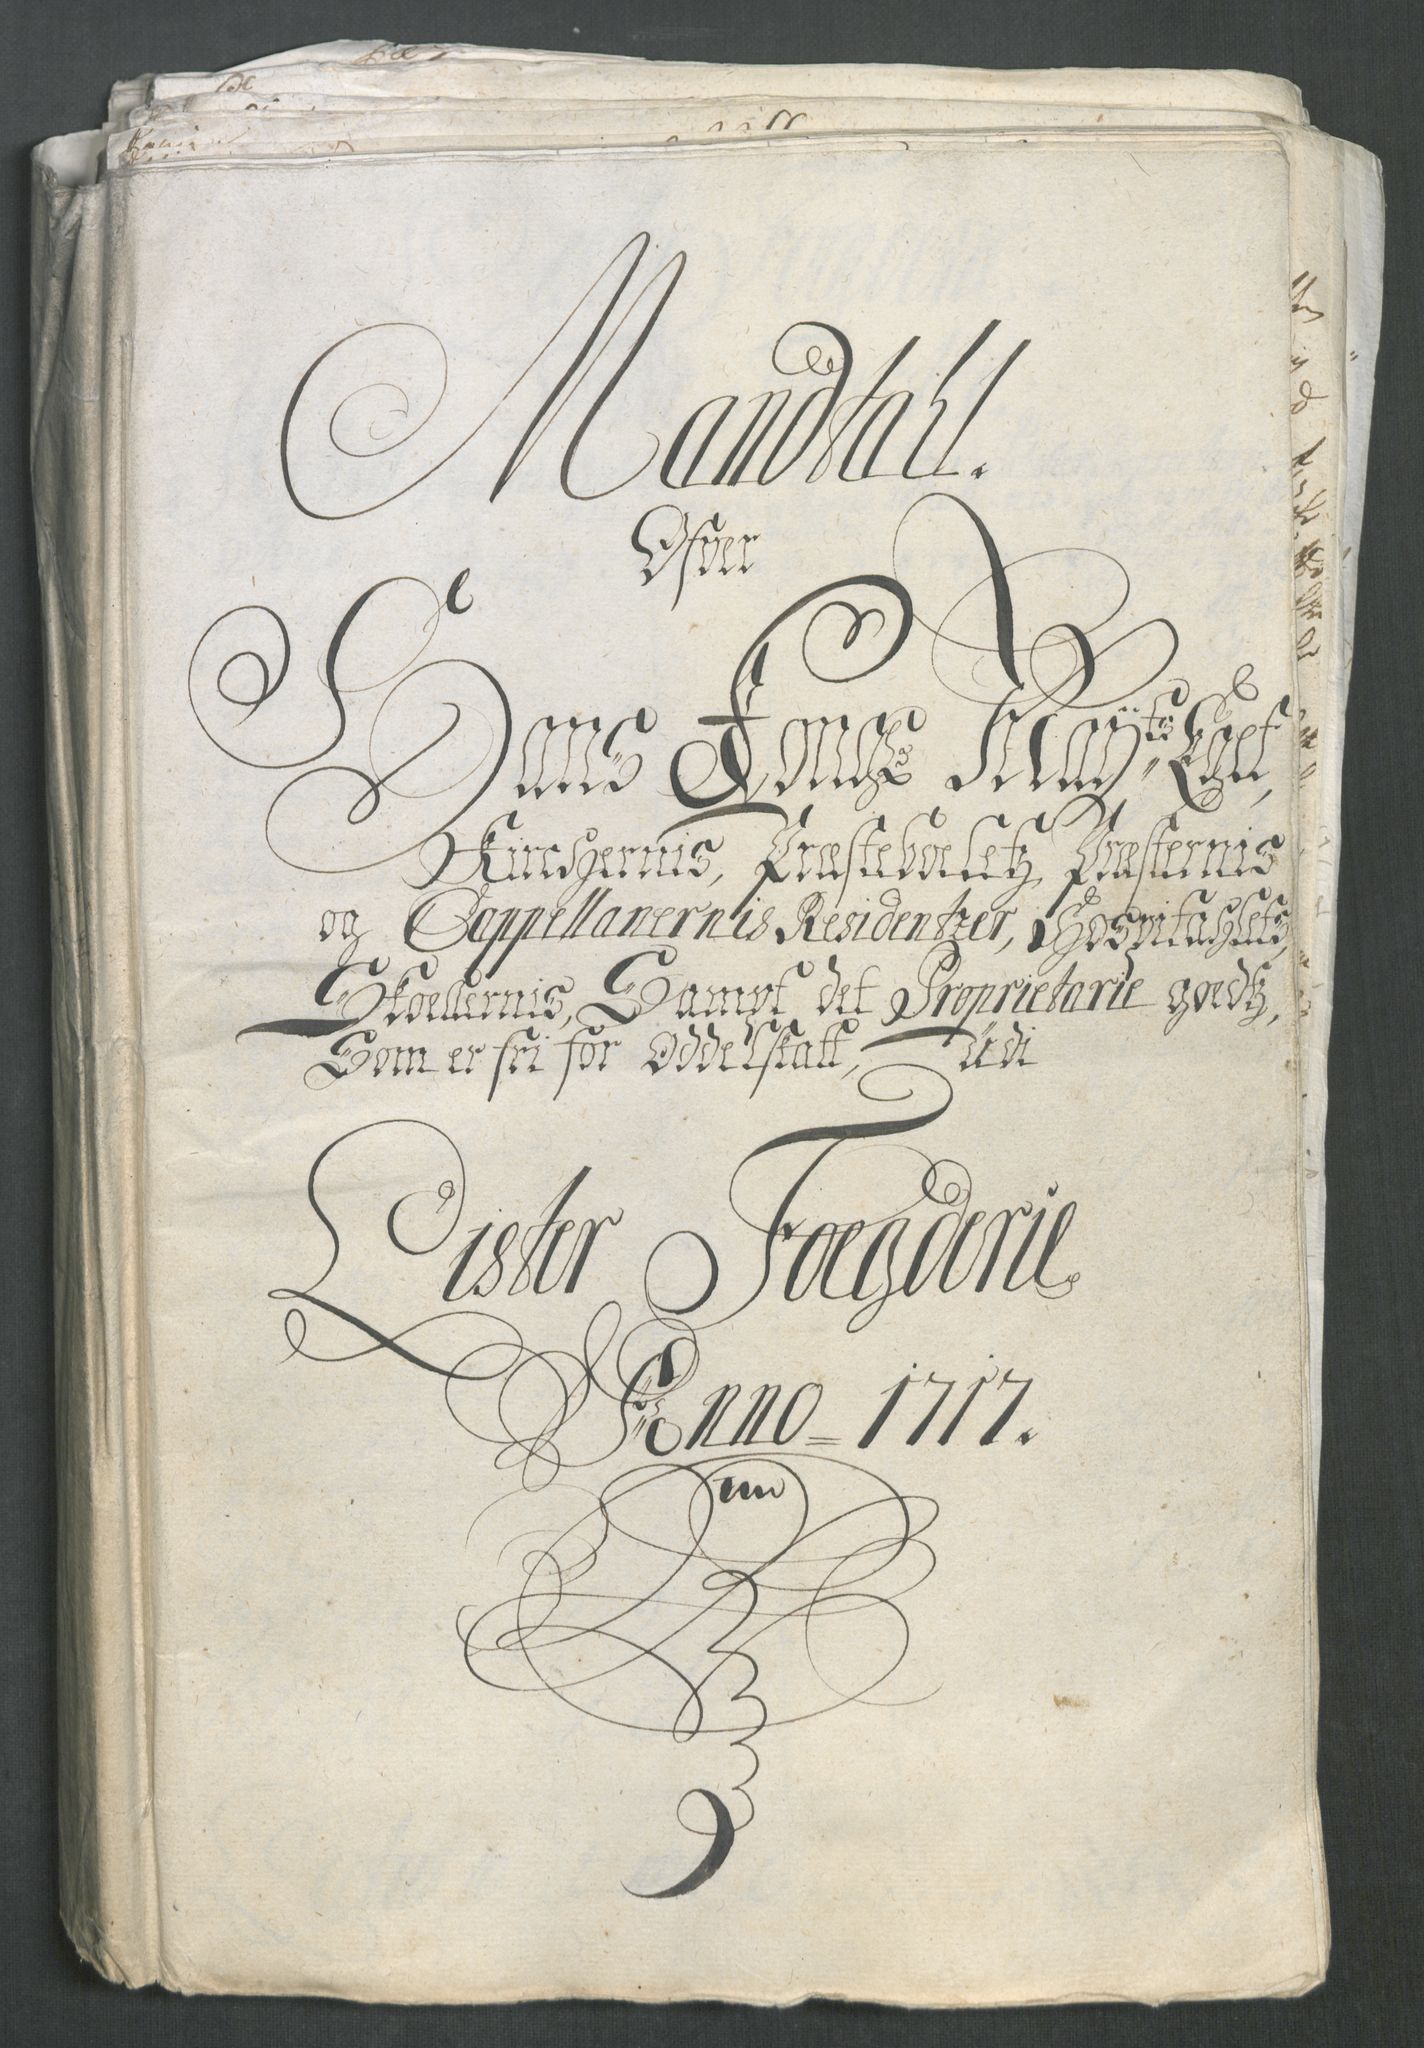 Mandtall.
Ofver
Hans Kongl Mayts
Kirchernis, Præstebolletz, Præsternis
og Cappellanernis Residentzer, Hospitahletz,
Skoellernis, Sampt det Proprietarie goedtz,
Som er fri for Oddelskatt, Udi
Lister Foegderie
Anno = 1717.